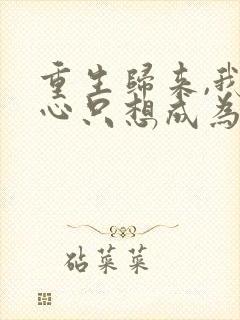 重生歸來,我
心只想成為
砧菜菜